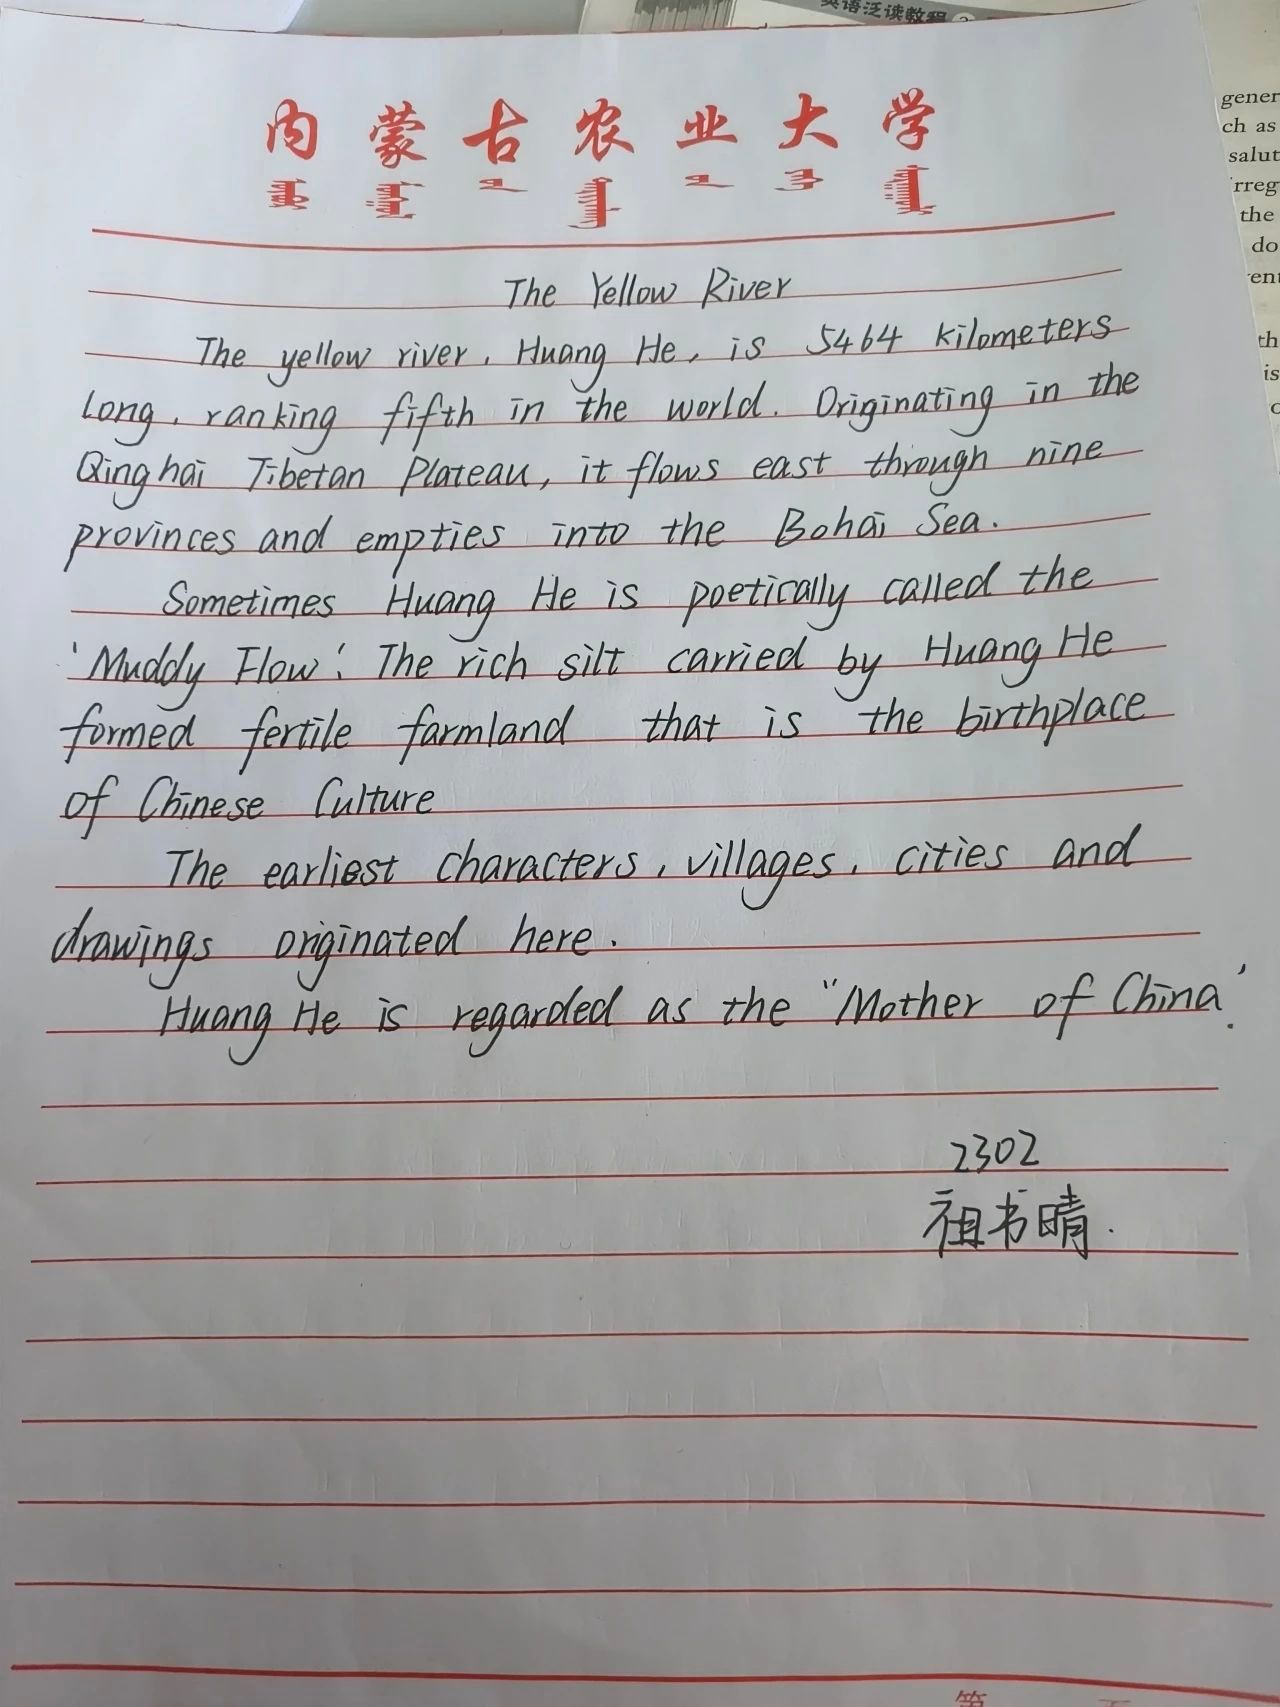 英语泛读教程 2
内蒙古农业大学
The Yellow River
The yellow river, Huang He, is 5464 kilometers
long, ranking fifth in the world. Originating in the
Qinghai Tibetan Plateau, it flows east through nine
provinces and empties into the Bohai Sea.
Sometimes Huang He is poetically called the
'Muddy Flow'. The rich silt carried by Huang He
formed fertile farmland that is the birthplace
of Chinese Culture
The earliest characters, villages, cities and
drawings originated here.
Huang He is regarded as the "Mother of China'.
2302
祖书晴.
gener
ch as
salut
rreg
the
do
ent
th
is
第